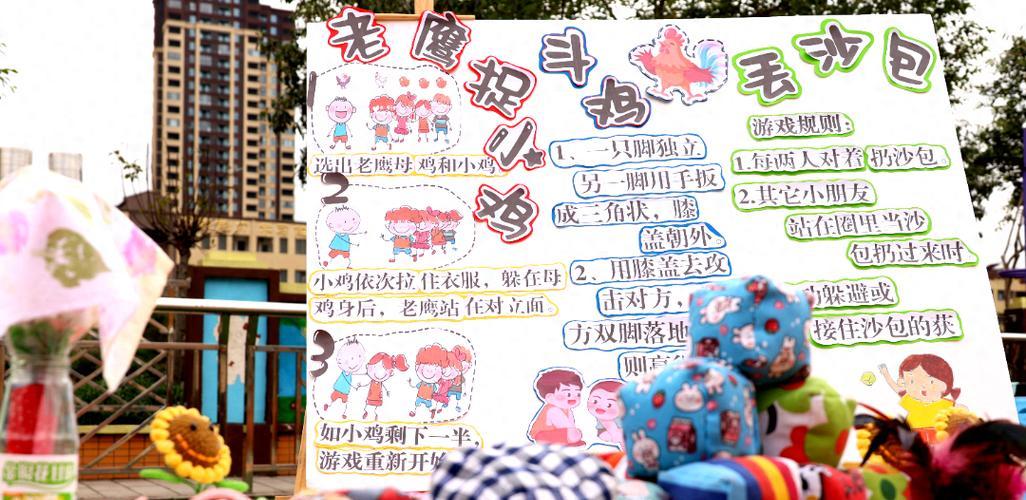 老鹰捉小鸡
1
选出老鹰母鸡和小鸡
2
小鸡依次拉住衣服，躲在母
鸡身后，老鹰站在对立面。
3
如小鸡剩下一半，
游戏重新开始
斗鸡
1、一只脚独立
另一脚用手扳
成三角状，膝
盖朝外。
2、用膝盖去攻
击对方，
方双脚落地
则赢
丢沙包
游戏规则：
1.每两人对着扔沙包。
2.其它小朋友
站在圈里当沙
包扔过来时
躲避或
接住沙包的获